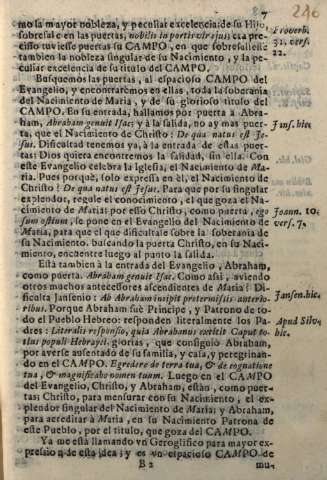 87
240
mo la mayor nobleza, y peculiar excelencia de su Hijo,
sobresalen en las puertas, nobilis in portis vir ejus: era pre-
cisso tuviesse puertas su CAMPO, en que sobresaliesse
tambien la nobleza singular de su Nacimiento, y la pe-
culiar excelencia de su titulo del CAMPO.
Proverb.
31. vers.
22.
Busquemos las puertas, al espacioso CAMPO del
Evangelio, y encontrarèmos en ellas, toda la soberanìa
del Nacimiento de Maria, y de su glorioso titulo del
CAMPO. En su entrada, hallamos por puerta a Abra-
ham, Abraham genuit Isac: y à la salida, no ay mas puer-
ta, que el Nacimiento de Christo: De qua natus est Je-
sus. Dificultad tenemos yà, à la entrada de estas puer-
tas: Dios quiera encontremos la salidad, sin ella. Con
este Evangelio celebra la Iglesia, el Nacimiento de Ma-
ria. Pues porquè, solo expressa en èl, el Nacimiento de
Christo? De qua natus est Jesus. Para que por su singular
explendor, regule el conocimiento, el que goza el Na-
cimiento de Maria: por esso Christo, como puerta, ego
sum ostium, se pone en el Evangelio del Nacimiento de
Maria, para que el que dificultasse sobre la soberanìa de
su Nacimiento, buscando la puerta Christo, en su Naci-
miento, encuentre luego al punto la salida.
Jans. hic.
Joann. 10.
vers. 7.
Està tambien à la entrada del Evangelio, Abraham,
como puerta. Abraham genuit Isac. Como assi, aviendo
otros muchos antecessores ascendientes de Maria? Di-
ficulta Jansenio: Ab Abraham incipit pretermissis anterio-
ribus. Porque Abraham fue Principe, y Patrono de to-
do el Pueblo Hebreo: responden literalmente los Pa-
dres: Literalis responsio, quia Abrahamus extitit Caput to-
tius populi Hebrayci. glorias, que consiguiò Abraham,
por averse ausentado de su familia, y casa, y peregrinan-
do en el CAMPO. Egredere de terra tua, & de cognatione
tua, & magnificabo nomen tuum. Luego en el CAMPO
del Evangelio, Christo, y Abraham, estàn, como puer-
tas; Christo, para mensurar con su Nacimiento, el ex-
plendor singular del Nacimiento de Maria; y Abraham,
para acreditar à Maria, en su Nacimiento Patrona de
este Pueblo, por el titulo, que goza del CAMPO.
Jansen. hic.
Apud Silv.
hic.
Ya me està llamando un Geroglifico para mayor ex-
pression de esta idea; y es un espacioso CAMPO de
B 2
mu-